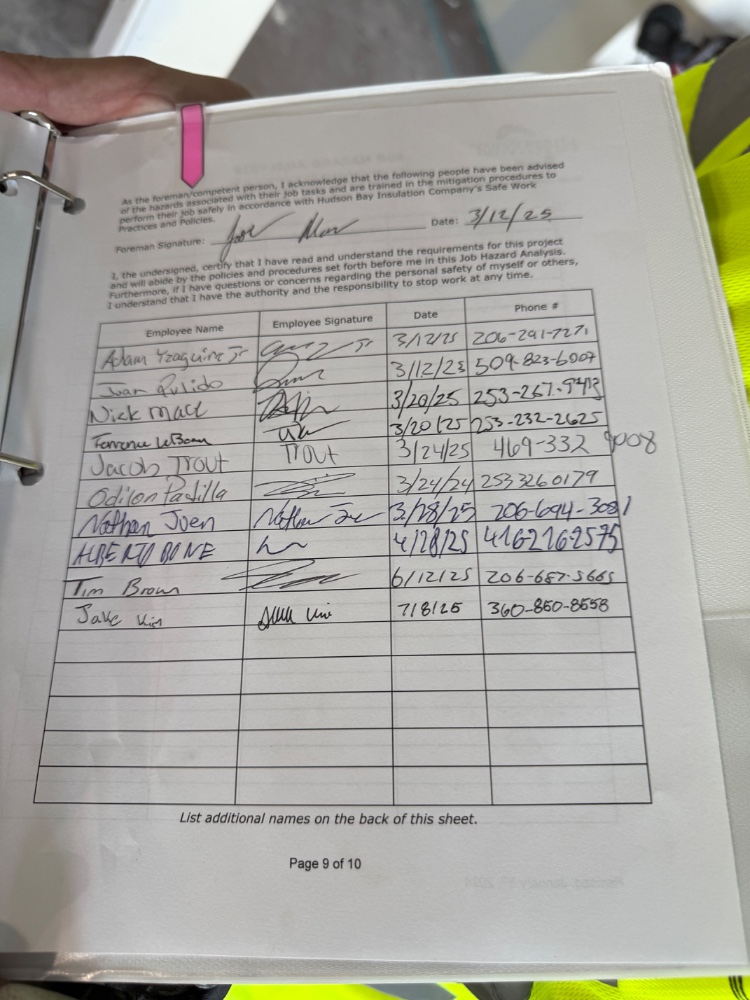 As the foreman/competent person, I acknowledge that the following people have been advised
of the hazards associated with their job tasks and are trained in the mitigation procedures to
perform their job safely in accordance with Hudson Bay Insulation Company's Safe Work
Practices and Policies.
Foreman Signature: Date: 3/12/25
I, the undersigned, certify that I have read and understand the requirements for this project
and will abide by the policies and procedures set forth before me in this Job Hazard Analysis.
Furthermore, if I have questions or concerns regarding the personal safety of myself or others,
I understand that I have the authority and the responsibility to stop work at any time.
Employee Name Employee Signature Date Phone #
Adam Yzaguirre Jr Jr 3/12/25 206-291-7271
Juan Pulido 3/12/25
Nick Mact 3/20/25
Terrence 3/20/25 253-232-2625
Jacob Trout Trout 3/24/25 469-332 9008
Odilon Padilla 3/24/24 253 326 0179
Nathan Juen 3/28/25 206-694-3081
ALBERTO BONE 4/28/25 416-216-2575
Tim Brown 6/12/25 206-687-5665
Jake 7/8/25 360-850-8558
List additional names on the back of this sheet.
Page 9 of 10